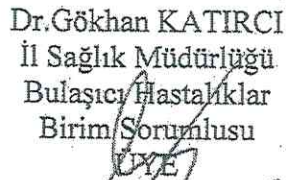 Dr.Gökhan KATIRCI
İl Sağlık Müdürlüğü
Bulaşıcı Hastalıklar
Birim Sorumlusu
ÜYE